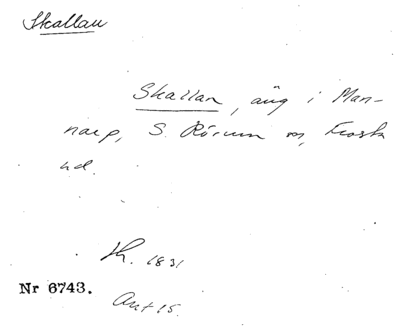 Skallan
Skallan, äng i Man-
narp, S. Rörum sn, Frosta
hd.
Sk. 1831
Nr 6743.
Akt 15.